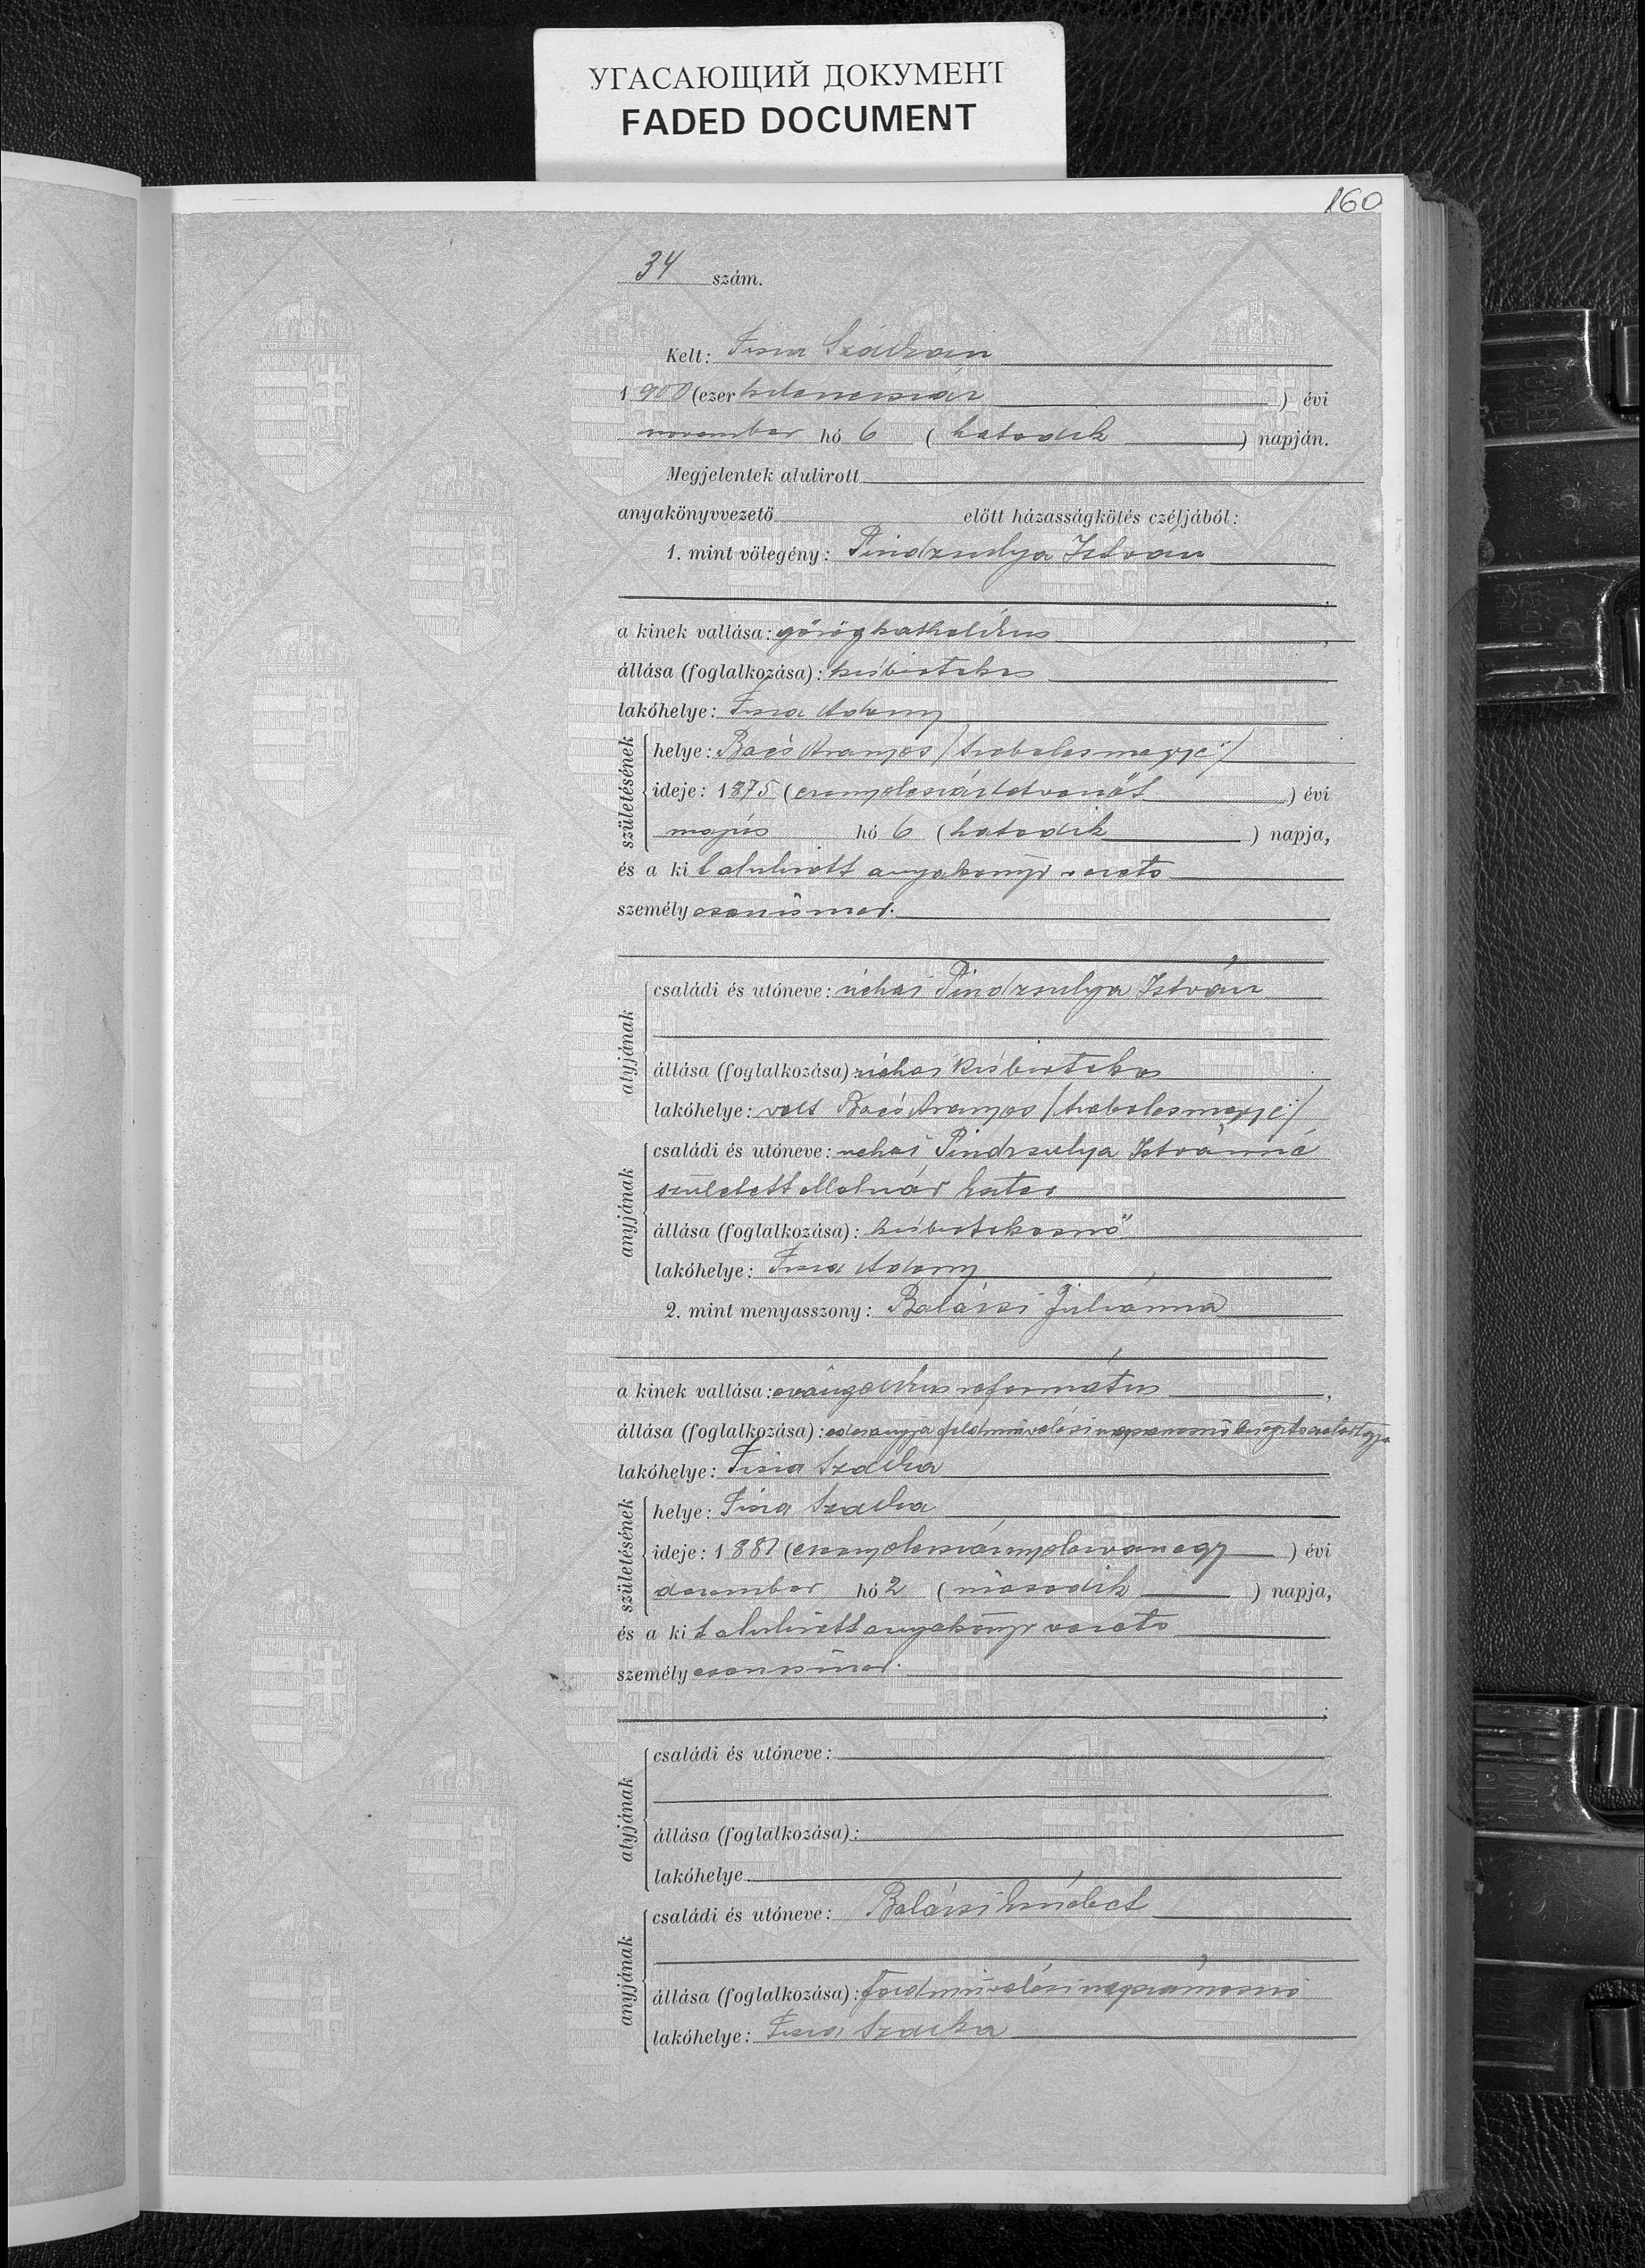 УГАСАЮЩИЙ ДОКУМЕНТ
FADED DOCUMENT
160
34 szám.
Kelt: Tisza Szálkán
1900 (ezer kilenczszáz) évi
november hó 6 (hatodik) napján.
Megjelentek alulirott
anyakönyvvezető előtt házasságkötés czéljából:
1. mint vőlegény: Pindzsulya István
a kinek vallása: görög katholikus,
állása (foglalkozása): kisbirtokos
lakóhelye: Tisza Adony
születésének
helye: Bacs Aranyos / Szabolcsmegye /
ideje: 1875 (ezernyolcszázhetvenöt) évi
május hó 6 (hatodik) napja,
és a kit alulirott anyakönyv vezető
személyesen ismer.
atyjának
családi és utóneve: néhai Pindzsulya István
állása (foglalkozása): néhai kisbirtokos
lakóhelye: volt Bacs Aranyos / Szabolcsmegye /
anyjának
családi és utóneve: néhai Pindzsulya Istvánné
született Molnár
állása (foglalkozása): kisbirtokosnő
lakóhelye: Tisza Adony
2. mint menyasszony: Balázsi Julianna
a kinek vallása: evángelikus református,
állása (foglalkozása): édesanyja földmivelési napszamosnő segitő családtagja
lakóhelye: Tisza Szalka
születésének
helye: Tisza Szalka
ideje: 1881 (ezernyolcszáznyolcvanegy) évi
december hó 2 (második) napja,
és a kit alulirott anyakönyv vezető
személyesen ismer.
atyjának
családi és utóneve:
állása (foglalkozása):
lakóhelye
anyjának
családi és utóneve: Balázsi Erzsébet
állása (foglalkozása): földmivelési napszámosnő
lakóhelye: Tisza Szalka